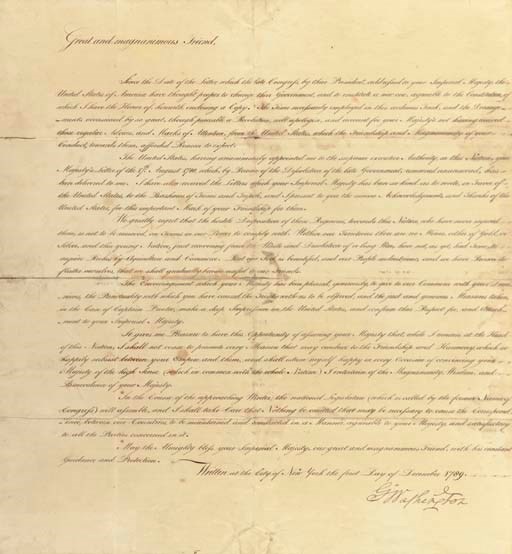 Great and magnanimous Friend,
Since the Date of the Letter, which the late Congress, by their President, addressed to your Imperial Majesty, the
United States of America have thought proper to change their Government, and to institute a new one, agreeable to the Constitution, of
which I have the Honor of, herewith, enclosing a Copy. The Time necessarily employed in this arduous Task, and the Derange-
ments occasioned by so great, though peaceable a Revolution, will apologize, and account for your Majesty's not having received
those regular Advices, and Marks of Attention, from the United States, which the Friendship and Magnanimity of your
Conduct, towards them, afforded Reason to expect.
The United States, having unanimously appointed me to the supreme executive Authority, in this Nation, your
Majesty's Letter of the 17th August 1788, which by Reason of the Dissolution of the late Government, remained unanswered, has
been delivered to me. I have also received the Letters which your Imperial Majesty has been so kind as to write, in Favor of
the United States, to the Bashaws of Tunis and Tripoli, and I present to you the sincere Acknowledgments, and Thanks of the
United States, for this important Mark of your Friendship for them.
We greatly regret that the hostile Disposition of those Regencies, towards this Nation, who have never injured
them, is not to be removed, on Terms in our Power to comply with. Within our Territories there are no Mines, either of Gold, or
Silver, and this young Nation, just recovering from the Waste and Desolation of a long War, have not, as yet, had Time to
acquire Riches by Agriculture and Commerce. But our Soil is bountiful, and our People industrious; and we have Reason to
flatter ourselves, that we shall gradually become useful to our Friends.
The Encouragement which your Majesty has been pleased, generously, to give to our Commerce with your Domi-
nions, the Punctuality with which you have caused the Treaty with us to be observed, and the just and generous Measures taken,
in the Case of Captain Proctor, make a deep Impression on the United States, and confirm their Respect for, and Attach-
ment to your Imperial Majesty.
It gives me Pleasure to have this Opportunity of assuring your Majesty that, while I remain at the Head
of this Nation, I shall not cease to promote every Measure that may conduce to the Friendship and Harmony, which so
happily subsist between your Empire and them, and shall esteem myself happy in every Occasion of convincing your
Majesty of the high Sense (which in common with the whole Nation) I entertain of the Magnanimity, Wisdom, and
Benevolence of your Majesty.
In the Course of the approaching Winter, the national Legislature (which is called by the former Name of
Congress) will assemble, and I shall take Care that Nothing be omitted that may be necessary to cause the Correspond-
ence, between our Countries, to be maintained and conducted in a Manner agreeable to your Majesty, and satisfactory
to all the Parties concerned in it.
May the Almighty bless your Imperial Majesty, our great and magnanimous Friend, with his constant
Guidance and Protection.
Written at the City of New York the first Day of December 1789.
G. Washington